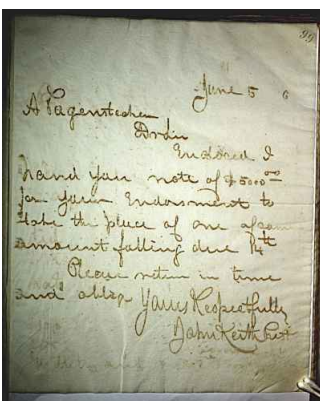 99
June 5 6
A Pagenstecher
Dr Sir
Enclosed I
hand you note of $5000 00
for your Endorsment to
take the place of one of same
amount falling due 14th
Please return in time
and oblige Yours Respectfully
John Keith